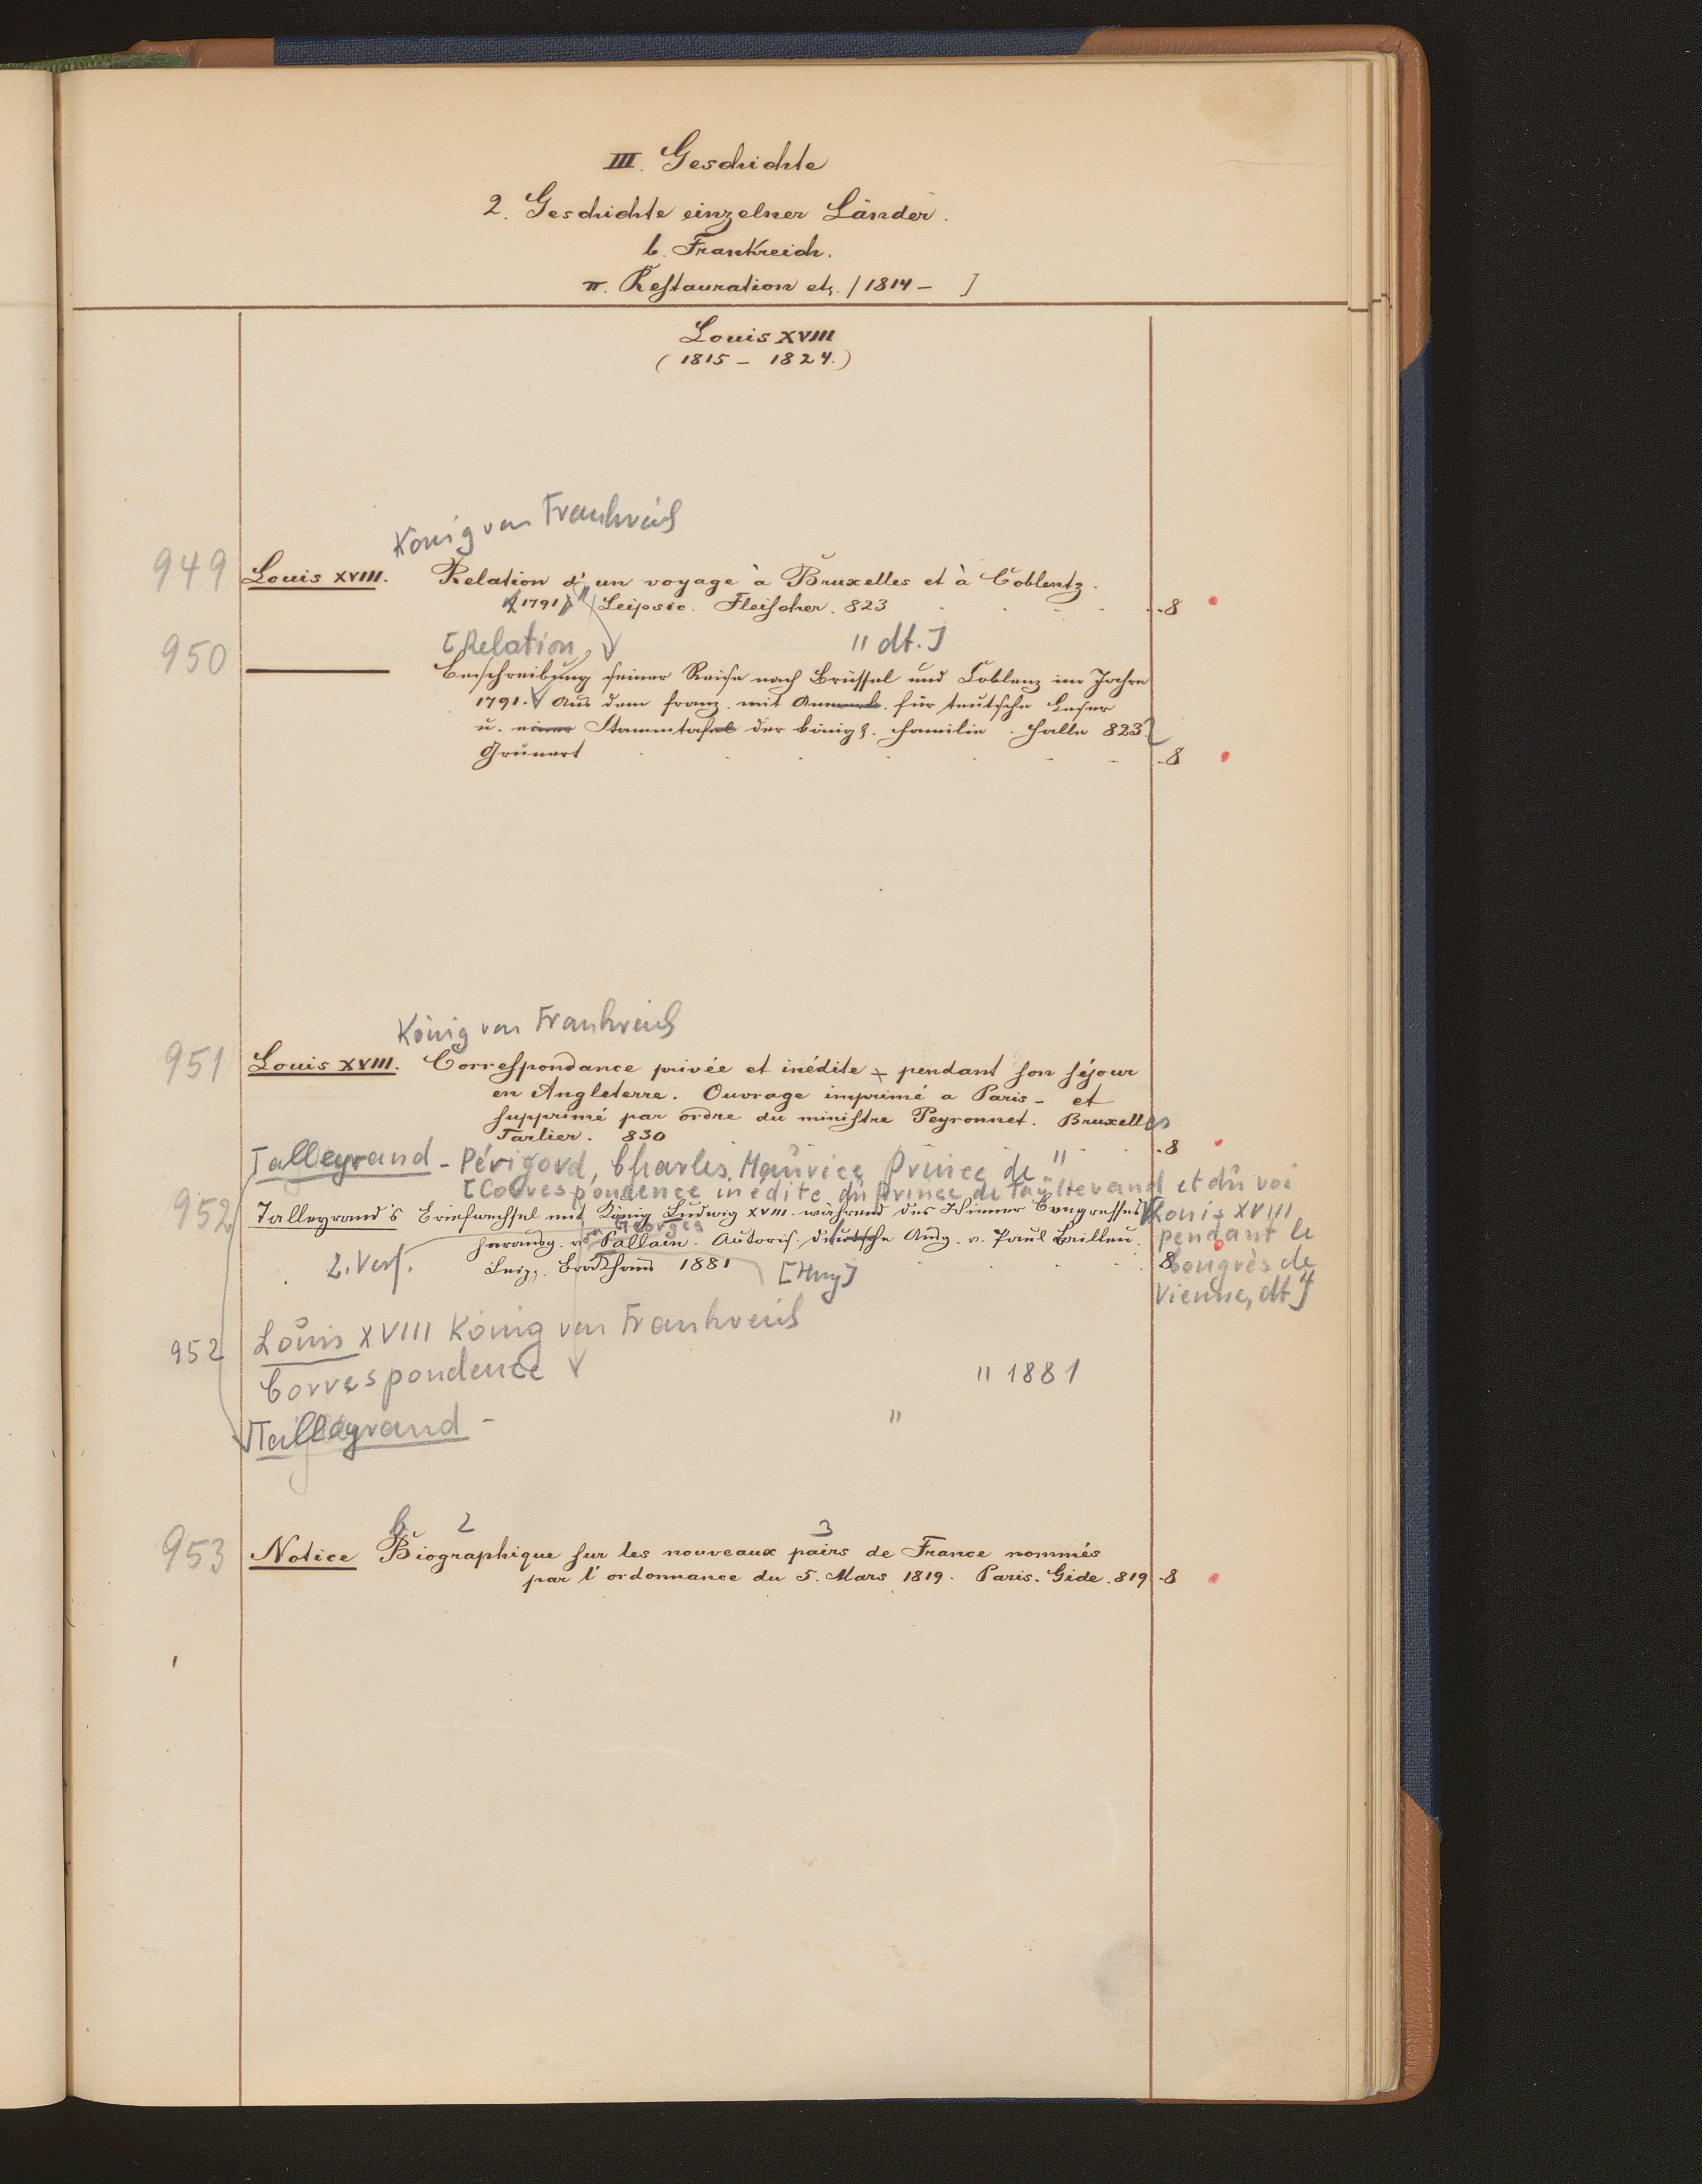 III. Geschichte
2. Geschichte einzelner Länder.
b. Frankreich.
π. Restauration etc. [1814 – ]
Louis XVIII
(1815 – 1824.)
König von Frankreich
949 Louis XVIII. Relation d'un voyage à Bruxelles et à Coblentz.
(1791) Leipsic. Fleischer. 823 8
950 [Relation " dt.]
Beschreibung seiner Reise nach Brüssel und Coblenz im Jahre
1791. Aus dem franz. mit Anmerk. für teutsche Leser
u. einer Stammtafel der königl. Familie. Halle 823.
Grunert 8
König von Frankreich
951 Louis XVIII. Correspondance privée et inédite + pendant son séjour
en Angleterre. Ouvrage imprimé a Paris – et
supprimé par ordre du ministre Peyronnet. Bruxelles
Tarlier. 830 8
Talleyrand - Périgord, Charles Maurice Prince de "
[Correspondence inédite du Prince de Talleyrand et du roi
952 Talleyrand's Briefwechsel mit König Ludwig XVIII. während des Wiener Congresses Louis XVIII
Georges
herausg. v. Pallain. Autoris. deutsche Ausg. v. Paul Bailleu. pendant le
2. Verf. Leipz. Brockhaus 1881 [Hrsg] 8 Congrès de
Vienne, dt]
952 Louis XVIII König von Frankreich
Correspondence " 1881
Talleyrand - "
b 2 3
953 Notice Biographique sur les nouveaux pairs de France nommés
par l'ordonnance du 5. Mars 1819. Paris. Gide. 819 8